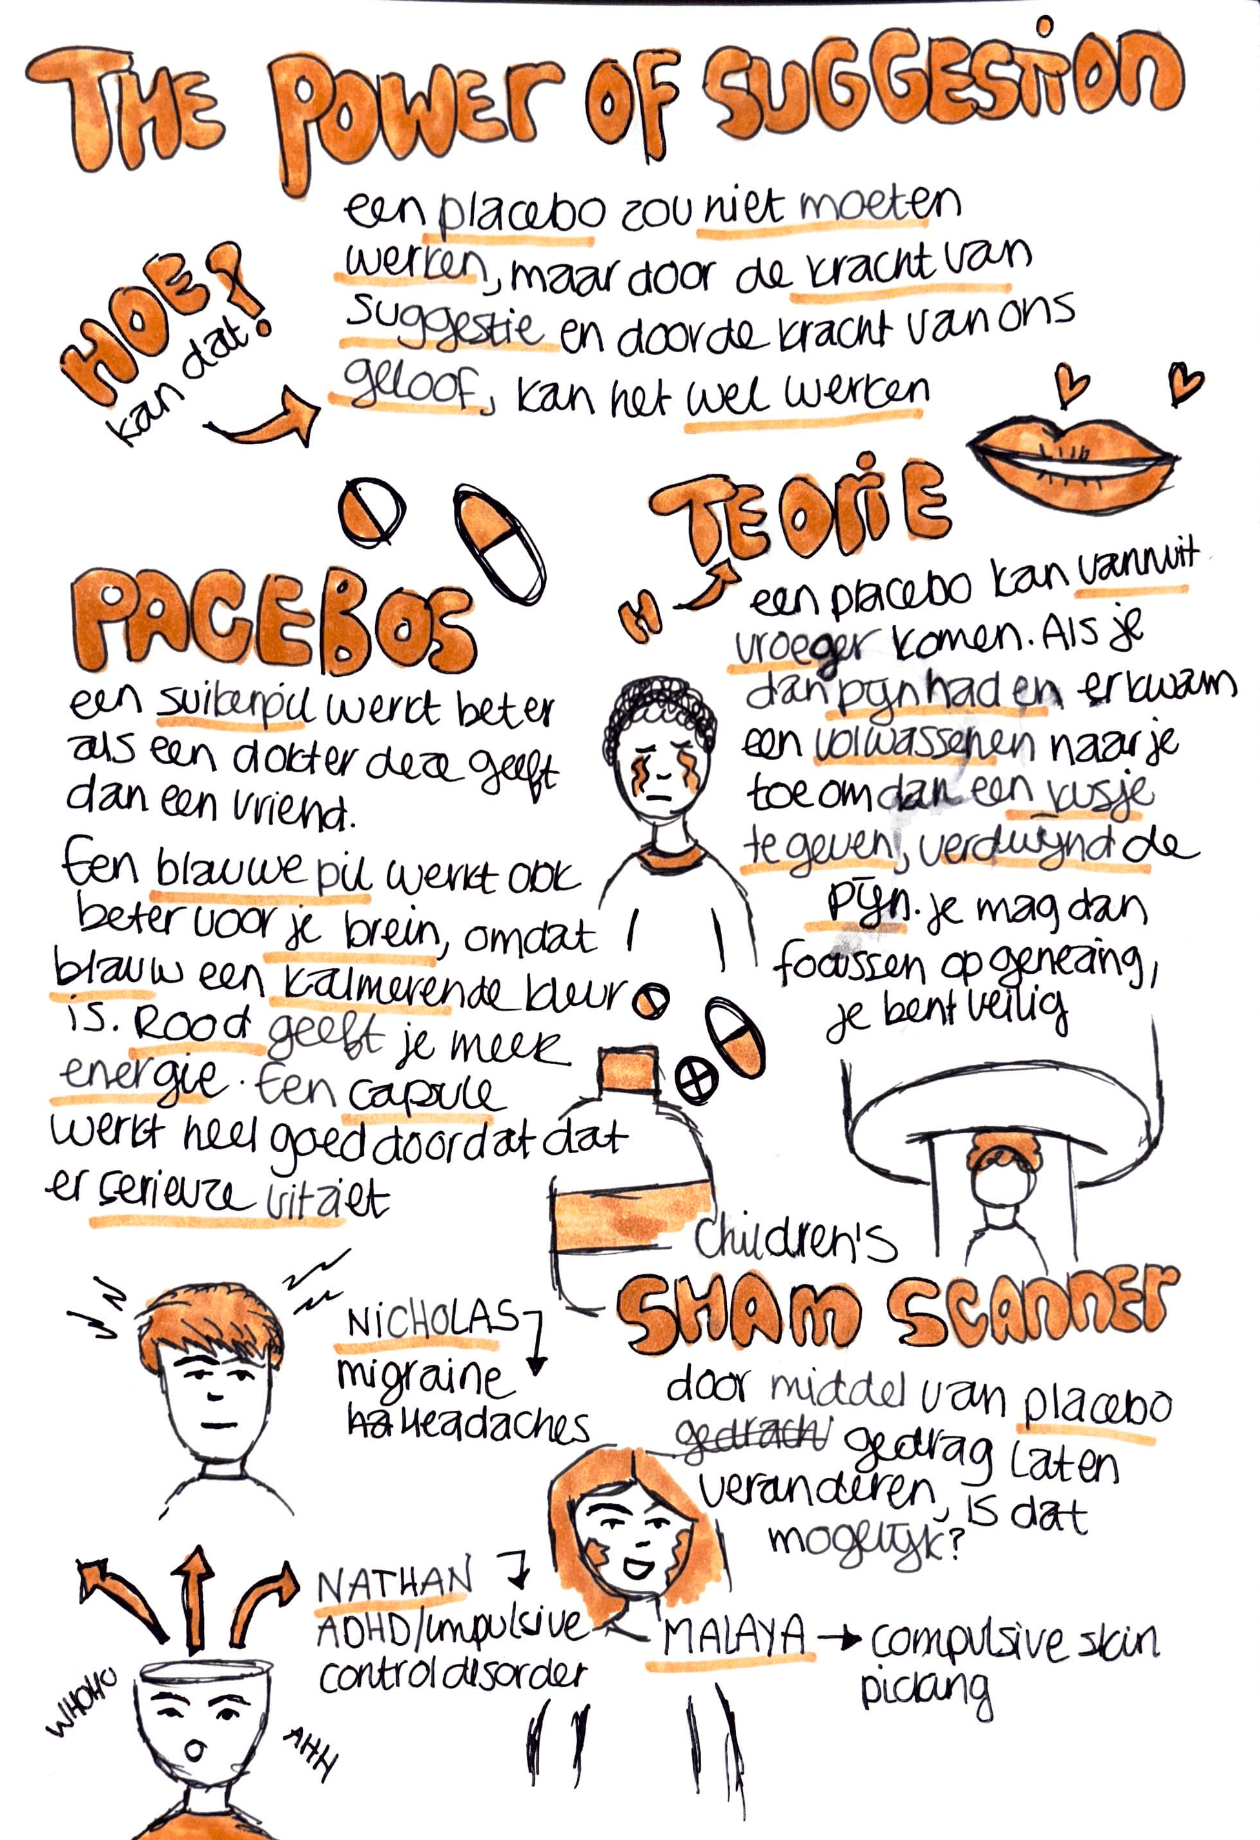 THE POWER OF SUGGESTION
een placebo zou niet moeten
werken, maar door de kracht van
suggestie en door de kracht van ons
geloof, kan het wel werken
HOE?
kan dat
TEORIE
H
een placebo kan vannuit
vroeger komen. Als je
dan pijn had en er kwam
een volwassenen naar je
toe om dan een kusje
te geven, verdwijnd de
pijn. je mag dan
focussen op genezing,
je bent veilig
PACEBOS
een suikerpil werkt beter
als een dokter deze geeft
dan een vriend.
Een blauwe pil werkt ook
beter voor je brein, omdat
blauw een kalmerende kleur
is. Rood geeft je meer
energie. Een capsule
werkt heel goed doordat dat
er serieuze uitziet
Children's
SHAM SCANNER
door middel van placebo
gedrach gedrag laten
veranderen, is dat
mogelijk?
NICHOLAS
migraine
ha Headaches
NATHAN
ADHD/impulsive
control disorder
WHOHO
AHH
MALAYA → compulsive skin
picking